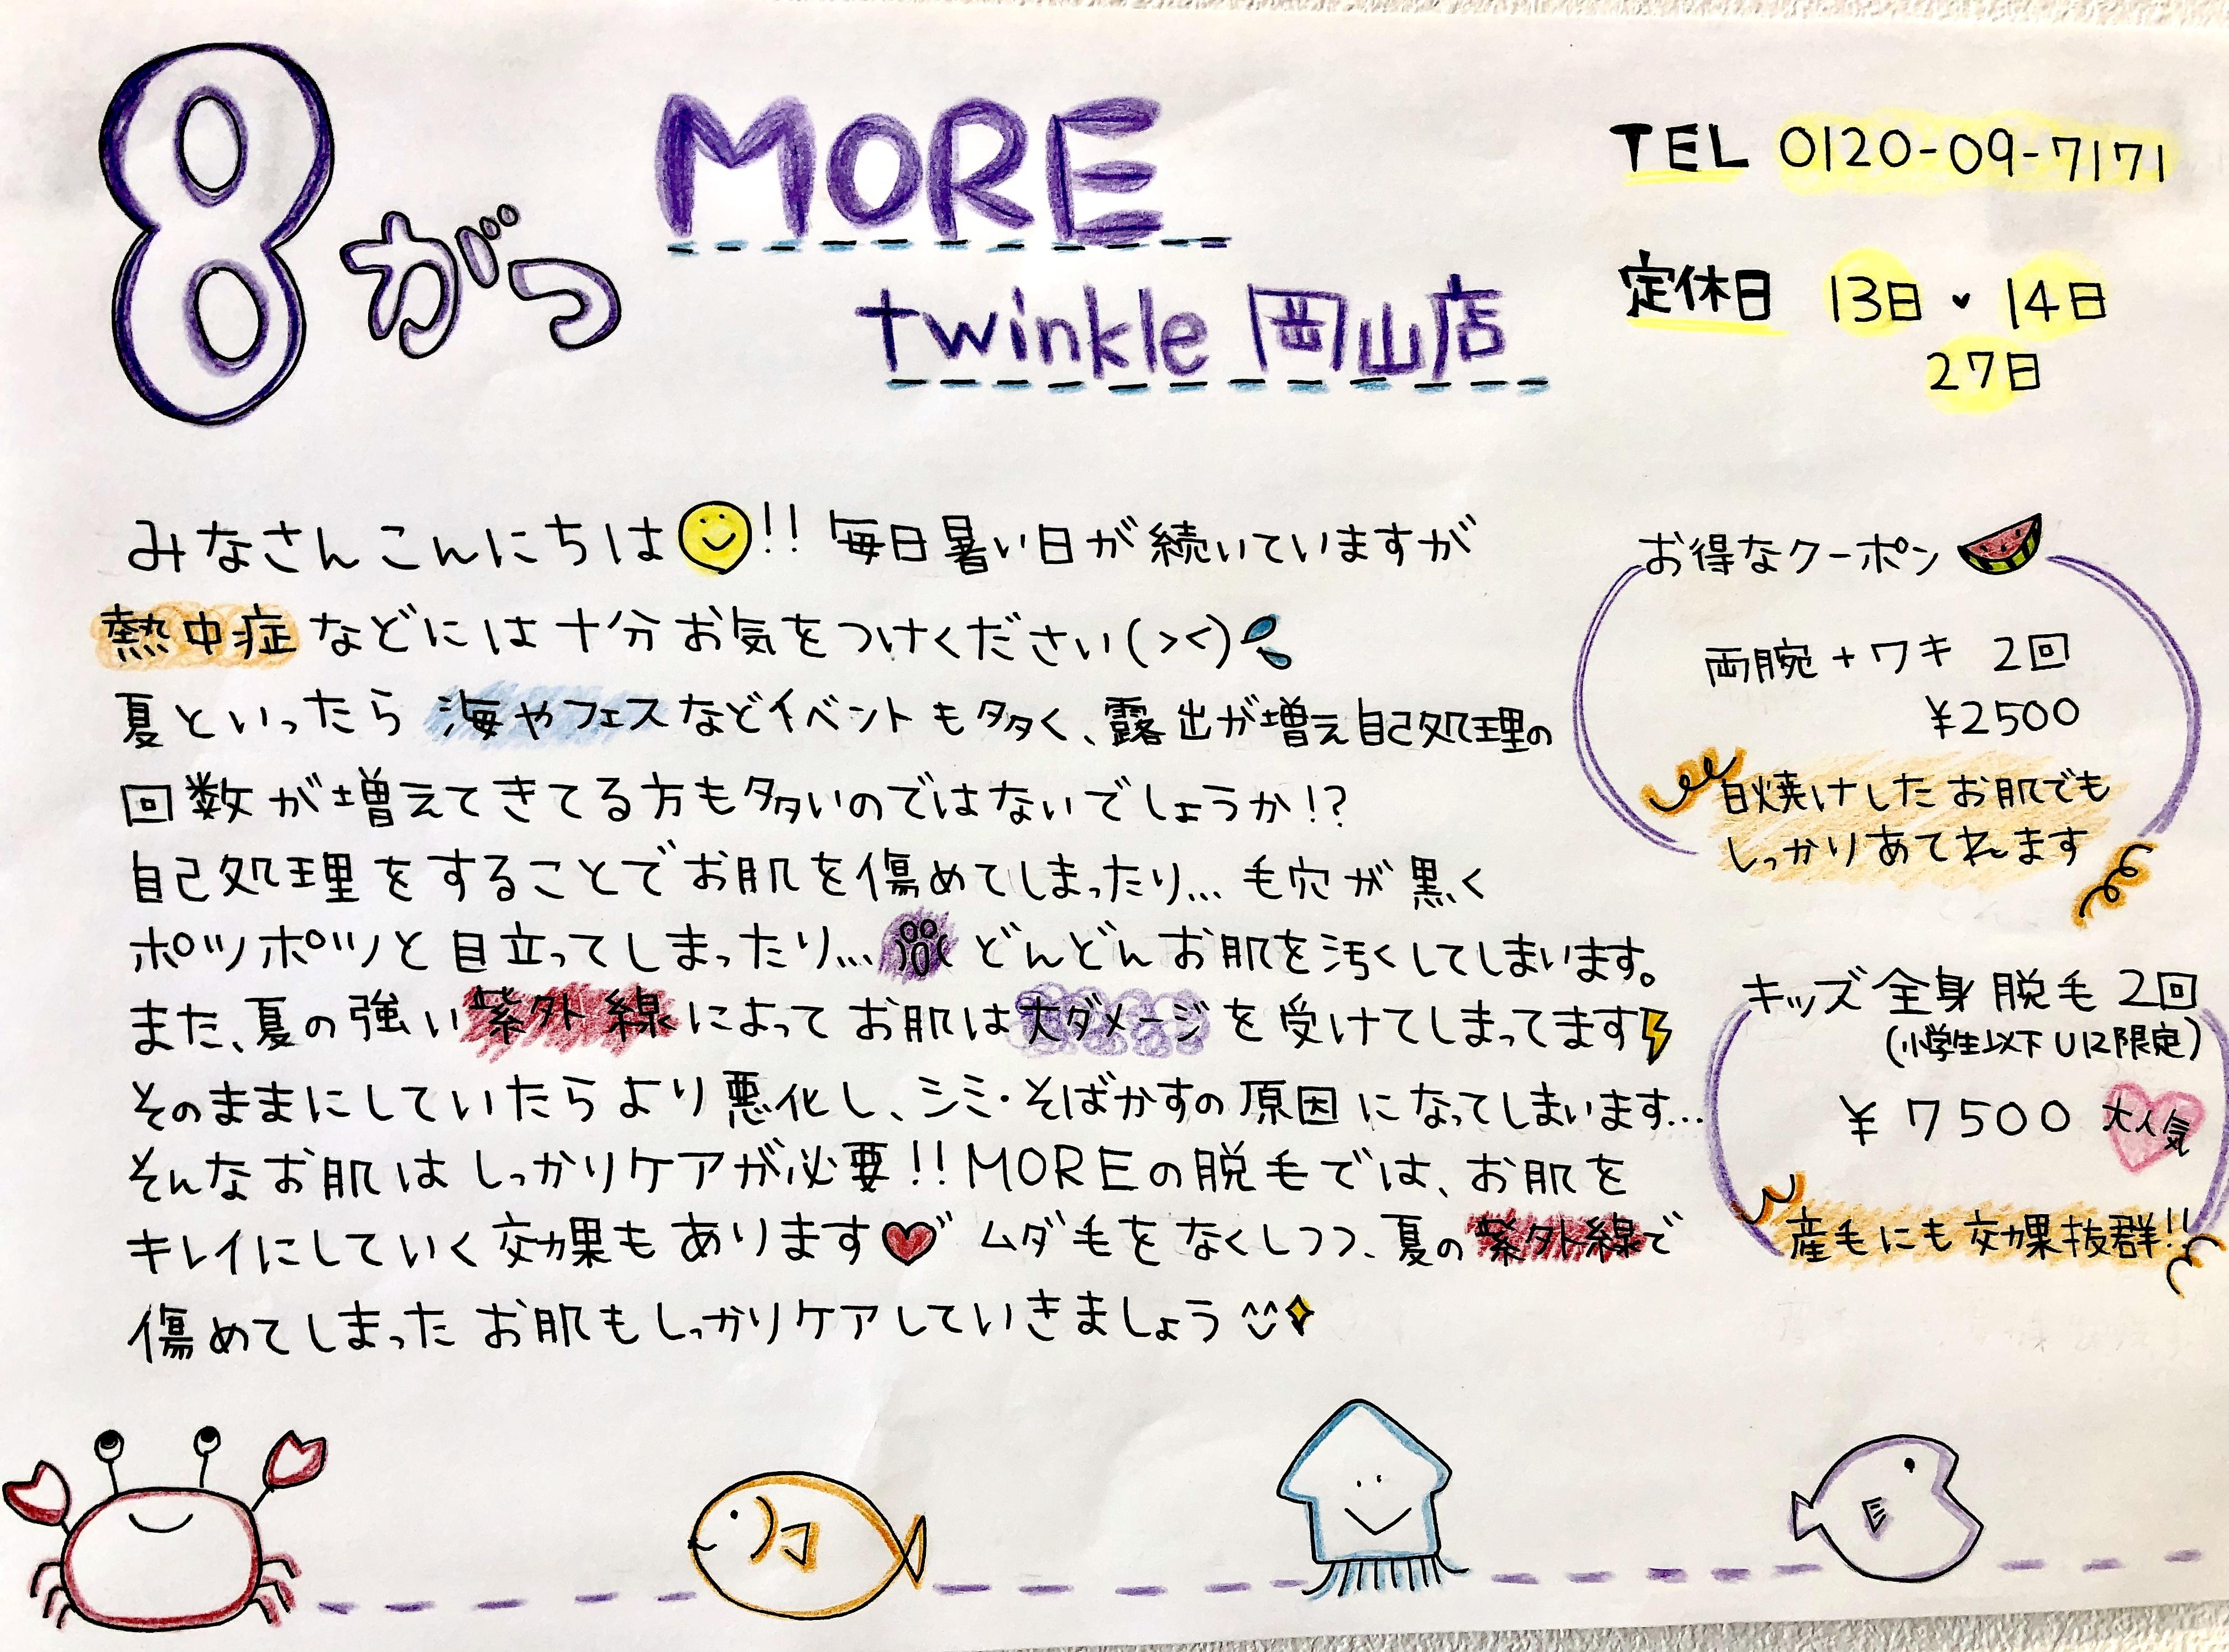 8がつ
MORE
twinkle 岡山店
TEL 0120-09-7171
定休日 13日・14日
27日
みなさんこんにちは!! 毎日暑い日が続いていますが
熱中症などには十分お気をつけください(><)
夏といったら海やフェスなどイベントも多く、露出が増え自己処理の
回数が増えてきてる方も多いのではないでしょうか!?
自己処理をすることでお肌を傷めてしまったり... 毛穴が黒く
ポツポツと目立ってしまったり... どんどんお肌を汚くしてしまいます。
また、夏の強い紫外線によってお肌は大ダメージを受けてしまってます
そのままにしていたらより悪化し、シミ・そばかすの原因になってしまいます...
そんなお肌はしっかりケアが必要!! MOREの脱毛では、お肌を
キレイにしていく効果もあります ムダ毛をなくしつつ、夏の紫外線で
傷めてしまったお肌もしっかりケアしていきましょう
お得なクーポン
両腕+ワキ 2回
¥2500
日焼けしたお肌でも
しっかりあてれます
キッズ全身脱毛2回
(小学生以下U12限定)
¥7500 大人気
産毛にも効果抜群!!